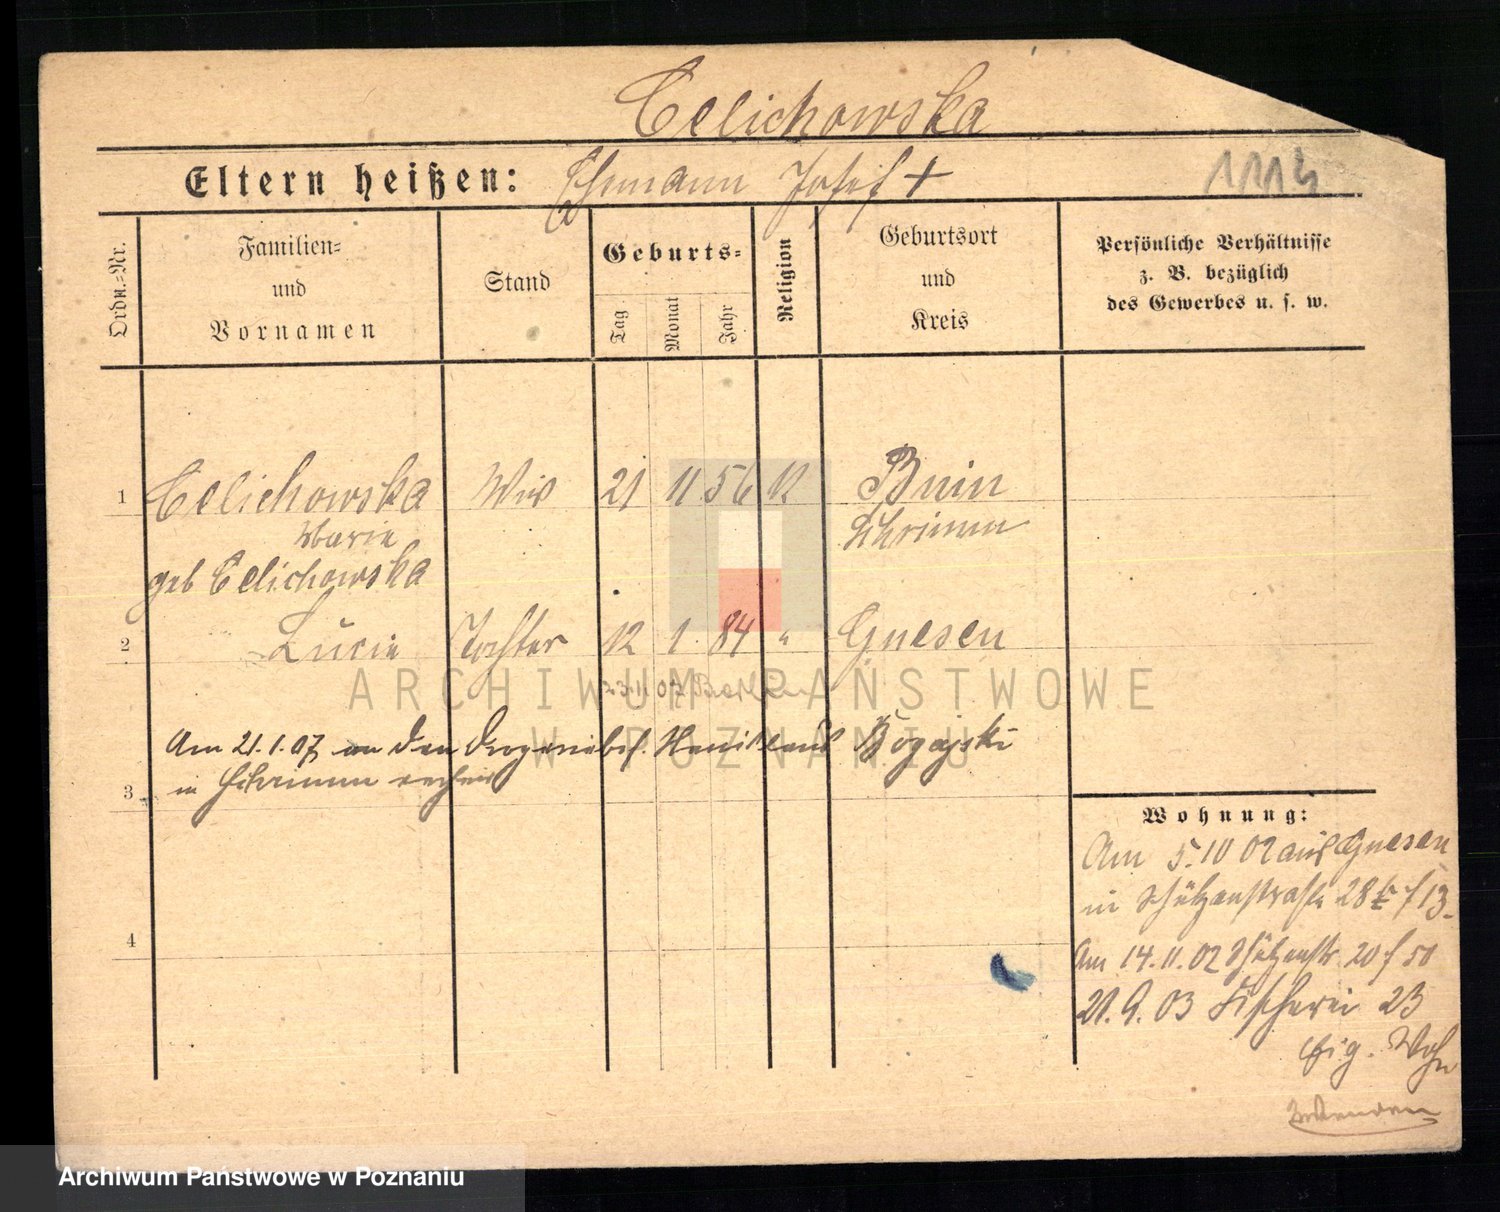 Celichowska
Eltern heißen: Ehemann Josef +
1113
Ordn.-Nr.
Familien-
und
Vornamen
Stand
Geburts-
Tag
Monat
Jahr
Religion
Geburtsort
und
Kreis
Persönliche Verhältnisse
z. B. bezüglich
des Gewerbes u. s. w.
1 Celichowska Ww 21 11 56 k Bnin
Marie Schrimm
geb Celichowska
2 Lucie Tochter 12 1 84 " Gnesen
23.11.07
Am 21.1.07 an den Drogeriebes. Bogajski
in Schrimm
3
4
Wohnung:
Am 5.10 02 aus Gnesen
in Schützenstraße 28 b f 13.
Am 14.11.02 Schützenstr 20 f 50
21.9.03 Fischerei 23
Eig. Wohn
ARCHIWUM PAŃSTWOWE
W POZNANIU
Archiwum Państwowe w Poznaniu